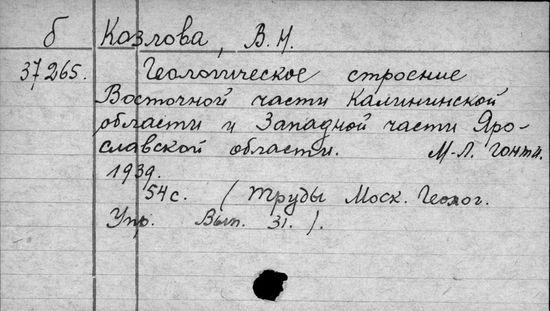 б Козлова, В.Н.
37265. Геологическое строение
Восточной части Калининской
области и Западной части Яро-
славской области. М-Л. гонти.
1939.
54 с. (Труды Моск. Геолог.
Упр. Вып. 31.).